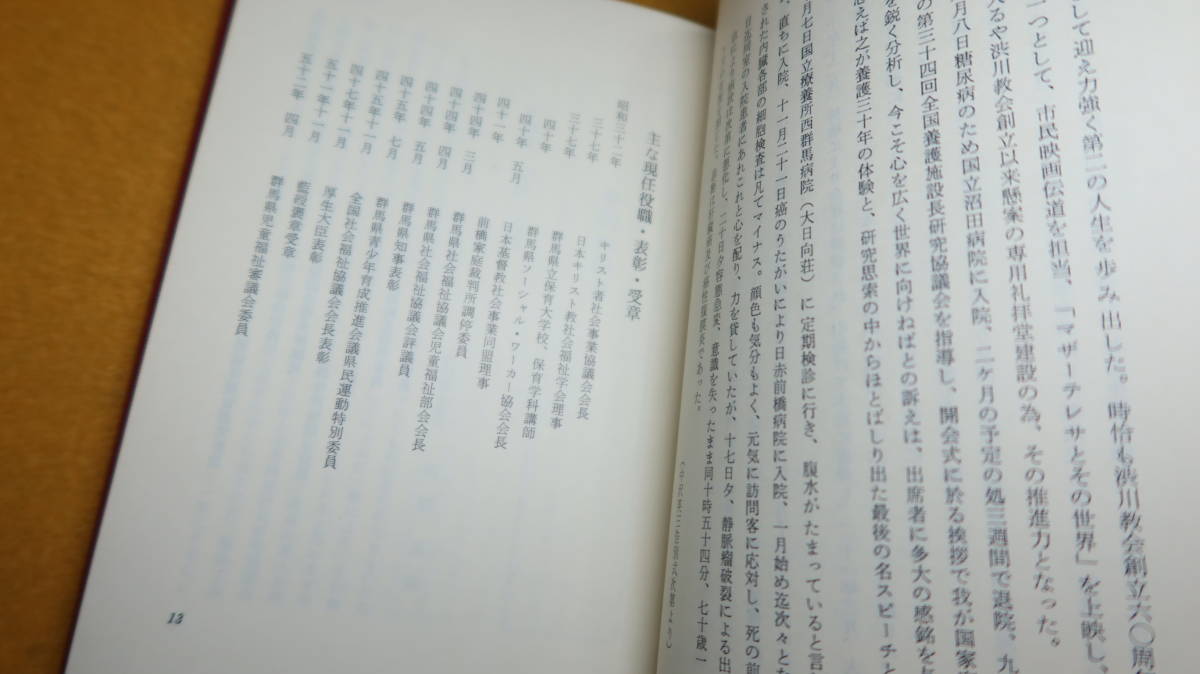 して迎え力強く第二の人生を歩み出した。時恰も渋川教会創立六〇周年
つとして、市民映画伝道を担当、「マザーテレサとその世界」を上映し、
るや渋川教会創立以来懸案の専用礼拝堂建設の為、その推進力となった。
月八日糖尿病のため国立沼田病院に入院、二ヶ月の予定の処三週間で退院、九
の第三十四回全国養護施設長研究協議会を指導し、開会式に於る挨拶で我が国家
を鋭く分析し、今こそ心を広く世界に向けねばとの訴えは、出席者に多大の感銘を
思えば之が養護三十年の体験と、研究思索の中からほとばしり出た最後の名スピーチと
月七日国立療養所西群馬病院（大日向荘）に定期検診に行き、腹水がたまっていると言
直ちに入院、十一月二十一日癌のうたがいにより日赤前橋病院に入院、一月始め迄次々とな
された内臓各部の細胞検査は凡てマイナス。顔色も気分もよく、元気に訪問客に応対し、死の前
日迄同室の入院患者にあれこれと心を配り、力を貸していたが、十七日夕、静脈瘤破裂による出
二十日夕容態急変、意識を失ったまま同十時五十四分、七十歳一
であった。
主な現任役職・表彰・受章
昭和三十二年 キリスト者社会事業協議会会長
三十七年 日本キリスト教社会福祉学会理事
三十七年 群馬県立保育大学校、保育学科講師
四十年 群馬県ソーシャル・ワーカー協会会長
四十年 五月 日本基督教社会事業同盟理事
四十一年 前橋家庭裁判所調停委員
四十四年 三月 群馬県社会福祉協議会評議員
四十四年 四月 群馬県社会福祉協議会児童福祉部会会長
四十四年 五月 群馬県知事表彰
四十五年 七月 群馬県青少年育成推進会議県民運動特別委員
四十五年十一月 全国社会福祉協議会会長表彰
四十七年十一月 厚生大臣表彰
五十一年十一月 藍綬褒章受章
五十二年 四月 群馬県児童福祉審議会委員
13